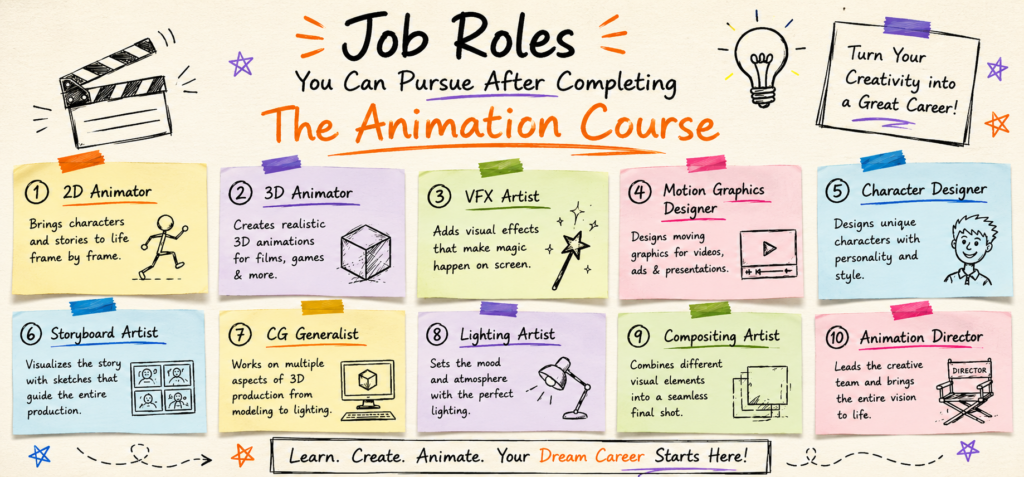 Job Roles
You Can Pursue After Completing
The Animation Course
Turn Your
Creativity into
a Great Career!
1 2D Animator
Brings characters
and stories to life
frame by frame.
2 3D Animator
Creates realistic
3D animations
for films, games
& more.
3 VFX Artist
Adds visual effects
that make magic
happen on screen.
4 Motion Graphics
Designer
Designs moving
graphics for videos,
ads & presentations.
5 Character Designer
Designs unique
characters with
personality and
style.
6 Storyboard Artist
Visualizes the story
with sketches that
guide the entire
production.
7 CG Generalist
Works on multiple
aspects of 3D
production from
modeling to lighting.
8 Lighting Artist
Sets the mood
and atmosphere
with the perfect
lighting.
9 Compositing Artist
Combines different
visual elements
into a seamless
final shot.
10 Animation Director
Leads the creative
team and brings
the entire vision
to life.
DIRECTOR
Learn. Create. Animate. Your Dream Career Starts Here!